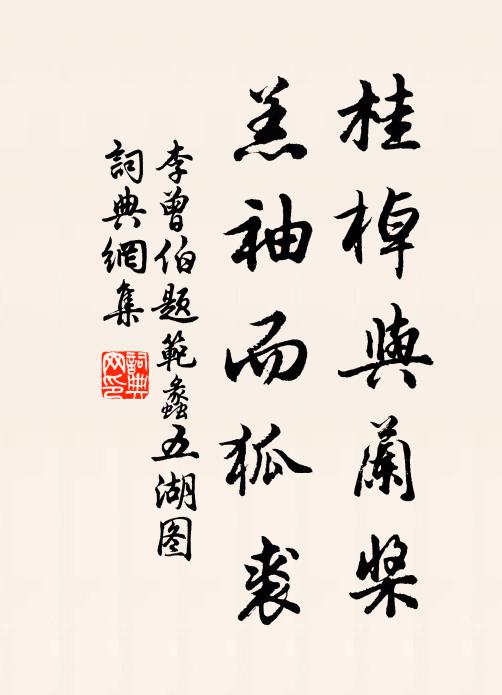 桂棹與蘭槳
羔袖而狐裘
李曾伯题範蠡五湖图
詞典網集
詞典網印